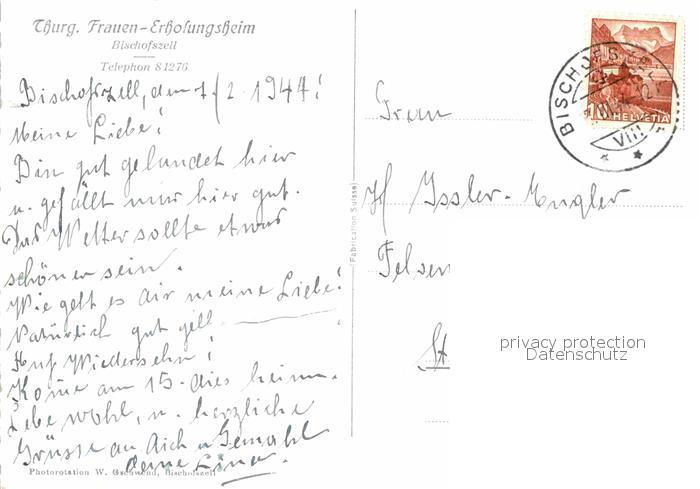 Thurg. Frauen-Erholungsheim
Bischofszell
Telephon 81276
Bischofszell, den 1./2. 1944!
Meine Liebe!
Bin gut gelandet hier
u. gefällt mir hier gut.
Das Wetter sollte etwas
schöner sein.
Wie geht es dir meine Liebe!
Natürlich gut gell
Auf Wiedersehn!
Kome am 15. dies heim.
Lebe wohl, u. herzliche
Grüsse an Dich u Gemahl
deine Lina.
Photorotation W. Gschwend, Bischofszell
(Fabrication Suisse)
Frau
Issler-Engler
Felsen
St
BISCHOFSZELL
VIII
10 HELVETIA
privacy protection
Datenschutz